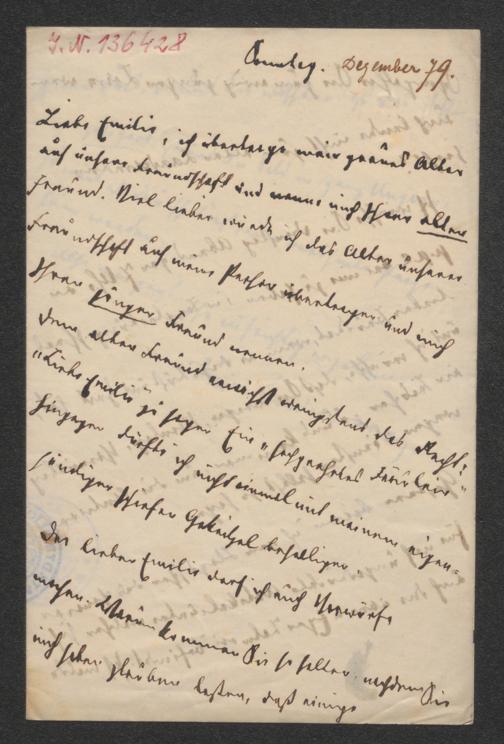 I. N. 136428
Sonntag. Dezember 79.
Liebe Emilie, ich übertrage mein graues Alter
auf unsere Freundschaft und nenne mich Ihren alten
Freund. Viel lieber würde ich das Alter unserer
Freundschaft auf meine Person übertragen und mich
Ihren jungen Freund nennen.
Dem alten Freund erwächst wenigstens das Recht:
"Liebe Emilie" zu sagen. Ein "hochgeehrtes Fräulein"
hingegen dürfte ich nicht einmal mit meinem eigen-
händigen Gekritzel behelligen.
Der lieben Emilie darf ich auch Vorwürfe
machen. Warum kommen Sie so selten, nachdem Sie
mich haben glauben lassen, daß einige